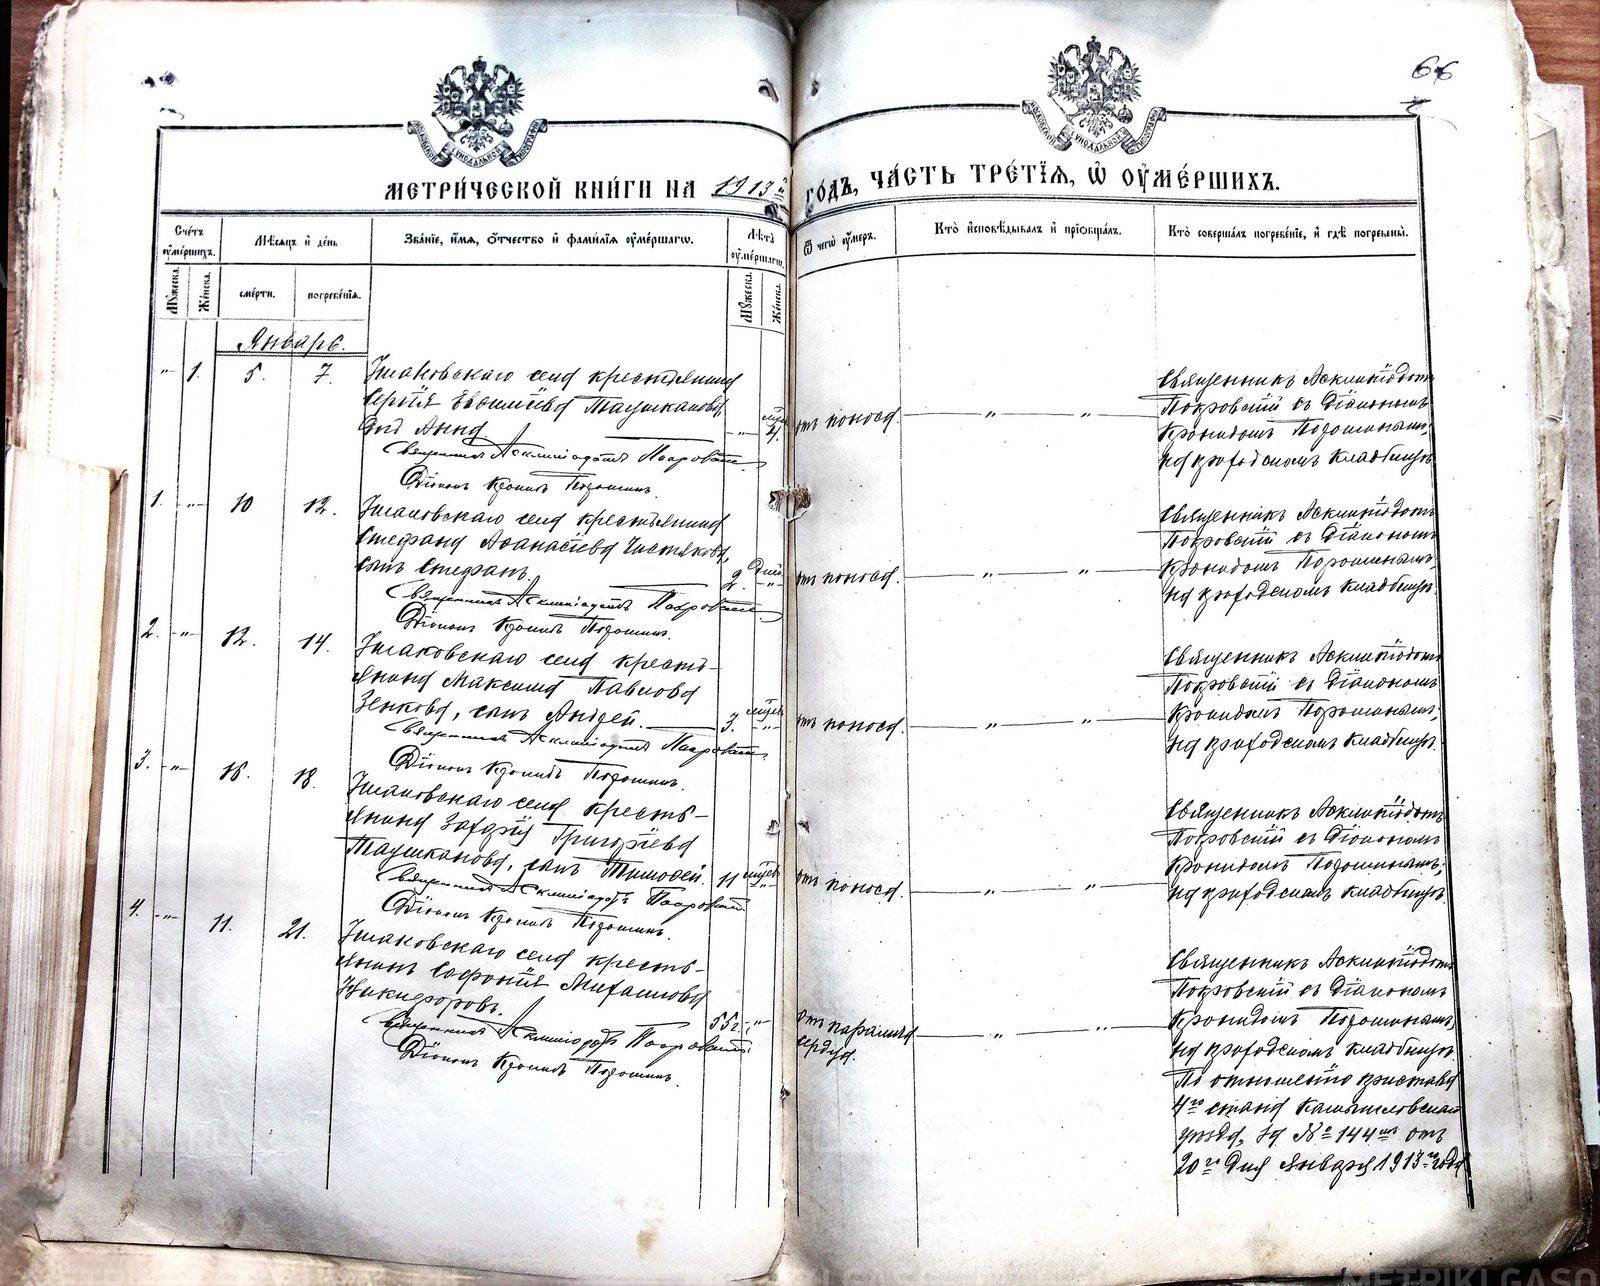 66
МОСКОВСКОЙ СѴНОДАЛЬНОЙ ТИПОГРАФІИ
МОСКОВСКОЙ СѴНОДАЛЬНОЙ ТИПОГРАФІИ
МЕТРИ́ЧЕСКОЙ КНИ́ГИ НА 1913й ГО́ДЪ, ЧА́СТЬ ТРЕ́ТІЯ, Ѡ҆ ОУ҆МЕ́РШИХЪ.
Сче́тъ оу҆ме́ршихъ.
Мѣ́сяцъ и҆ де́нь
Зва́ніе, и҆́мя, о҆́тчество и҆ фами́лія оу҆ме́ршагѡ.
Лѣ́та оу҆ме́ршагѡ.
Ѿ чегѡ̀ оу҆́меръ.
Кто̀ и҆сповѣ́дывалъ и҆ прїѡбща́лъ.
Кто̀ соверша́лъ погребе́ніе, и҆ гдѣ̀ погребены̀.
Му́жеска.
Же́нска.
сме́рти.
погребе́нія.
Му́жеска.
Же́нска.
Январь.
-"- 1. 5. 7. Ушаковскаго села крестьянина
Сергія Евфиміева Таушканова
дочь Анна. -"- 4. мѣс. отъ поноса. " "
Священникъ Асклипіодотъ Покровскій
Діаконъ Кронидъ Порошинъ.
Священникъ Асклипіодотъ
Покровскій съ Діакономъ
Кронидомъ Порошинымъ;
на приходскомъ кладбищѣ.
1. -"- 10 12. Ушаковскаго села крестьянина
Стефана Аѳанасіева Чистякова,
сынъ Стефанъ. 2. дней -"- отъ поноса. " "
Священникъ Асклипіодотъ Покровскій
Діаконъ Кронидъ Порошинъ.
Священникъ Асклипіодотъ
Покровскій съ Діакономъ
Кронидомъ Порошинымъ,
на приходскомъ кладбищѣ.
2. -"- 12. 14. Ушаковскаго села кресть-
янина Максима Павлова
Зенкова, сынъ Андрей. 3. -"- отъ поноса. " "
Священникъ Асклипіодотъ Покровскій
Діаконъ Кронидъ Порошинъ.
Священникъ Асклипіодотъ
Покровскій съ Діакономъ
Кронидомъ Порошинымъ;
на приходскомъ кладбищѣ.
3. -"- 16. 18. Ушаковскаго села кресть-
янина Захарія Григоріева
Таушканова, сынъ Тимоѳей. 11 -"- отъ поноса. " "
Священникъ Асклипіодотъ Покровскій.
Діаконъ Кронидъ Порошинъ.
Священникъ Асклипіодотъ
Покровскій съ Діакономъ
Кронидомъ Порошинымъ;
на приходскомъ кладбищѣ.
4. -"- 11. 21. Ушаковскаго села кресть-
янинъ Софроній Михаиловъ
Никифоровъ. 55 г. -"- отъ паралича сердца. " "
Священникъ Асклипіодотъ Покровскій
Діаконъ Кронидъ Порошинъ.
Священникъ Асклипіодотъ
Покровскій съ Діакономъ
Кронидомъ Порошинымъ,
на приходскомъ кладбищѣ.
По отношенію пристава
4го стана Камышловскаго
уѣзда, за № 144мъ отъ
20го дня января 1913го года
METRIKI.GASO